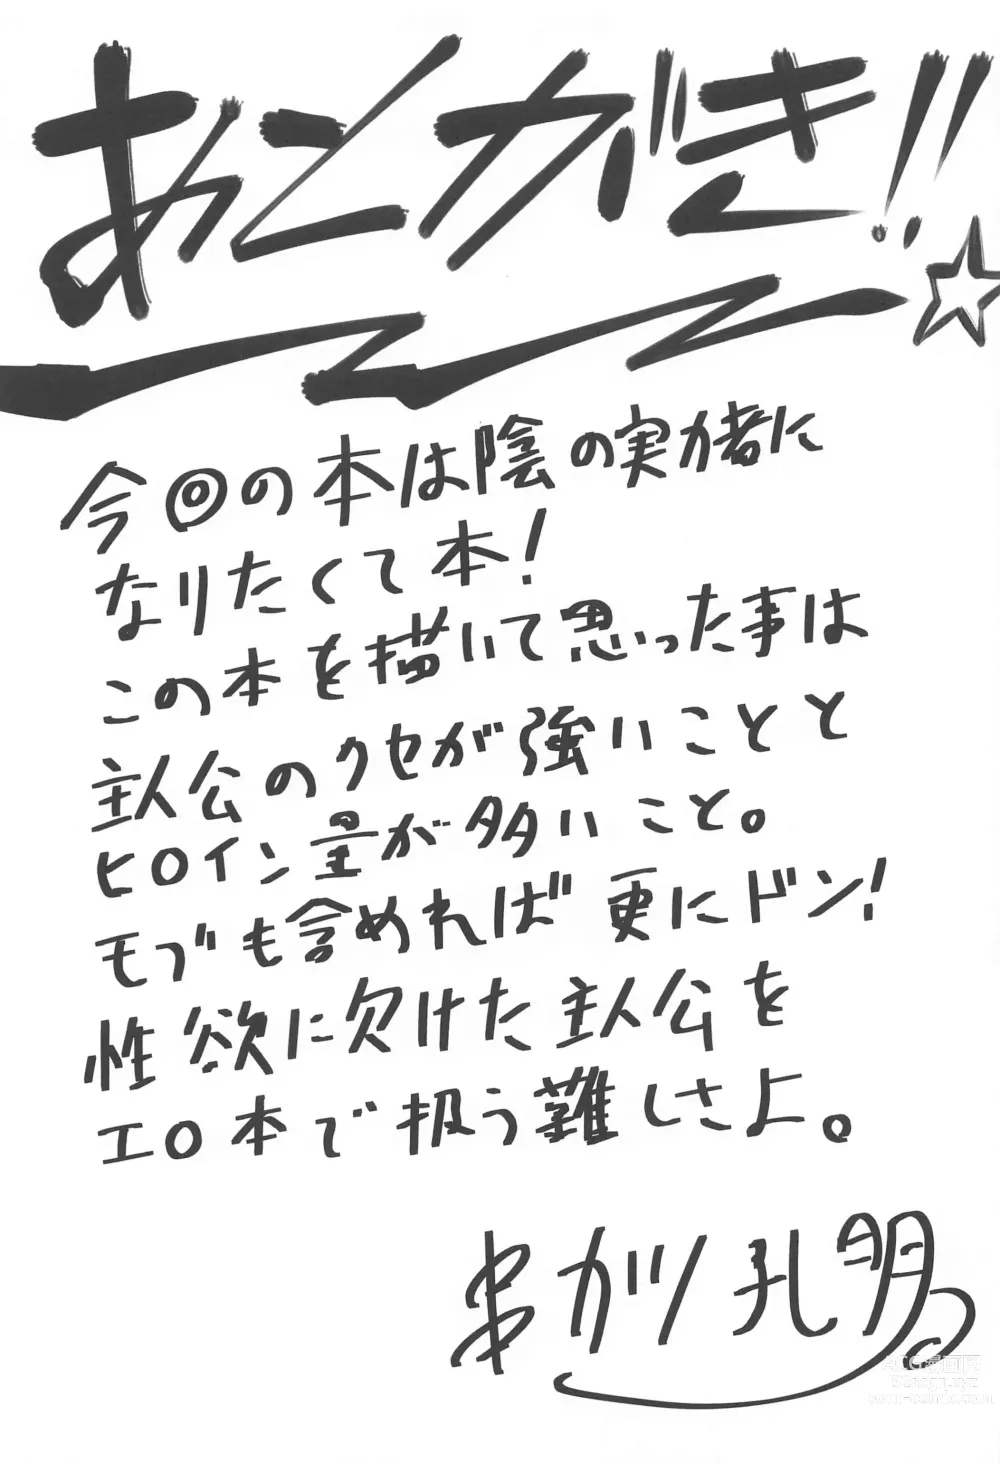 あとがき!!☆
今回の本は陰の実力者に
なりたくて本!
この本を描いて思った事は
主人公のクセが強いことと
ヒロイン量が多いこと。
モブも含めれば更にドン!
性欲に欠けた主人公を
エロ本で扱う難しさよ。
串カツ孔明
ACG漫画网